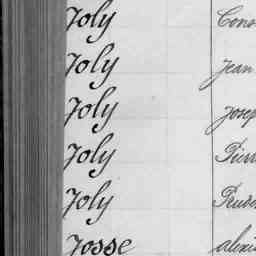 Joly Cons
Joly Jean
Joly Josep
Joly Pierr
Joly Prude
Josse alexi